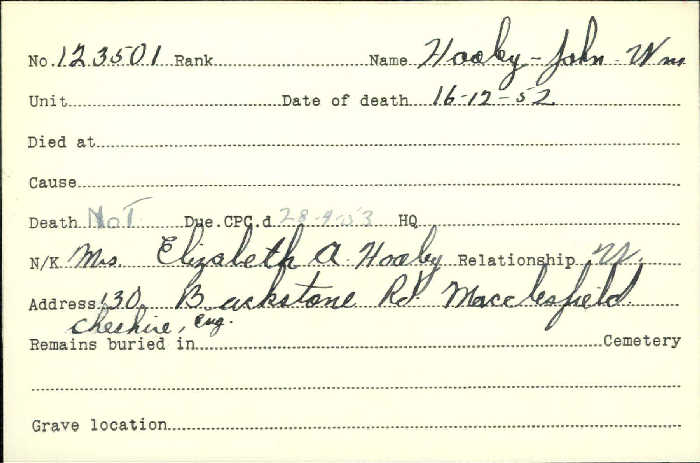 No. 123501 Rank Name Hooley - John - Wm
Unit Date of death 16-12-52
Died at
Cause
Death NoT Due.CPC.d 28-4-53 HQ
N/K Mrs. Elizabeth A Hooley Relationship W.
Address 130 Backstone Rd. Macclesfield.
Cheshire, Eng.
Remains buried in Cemetery
Grave location